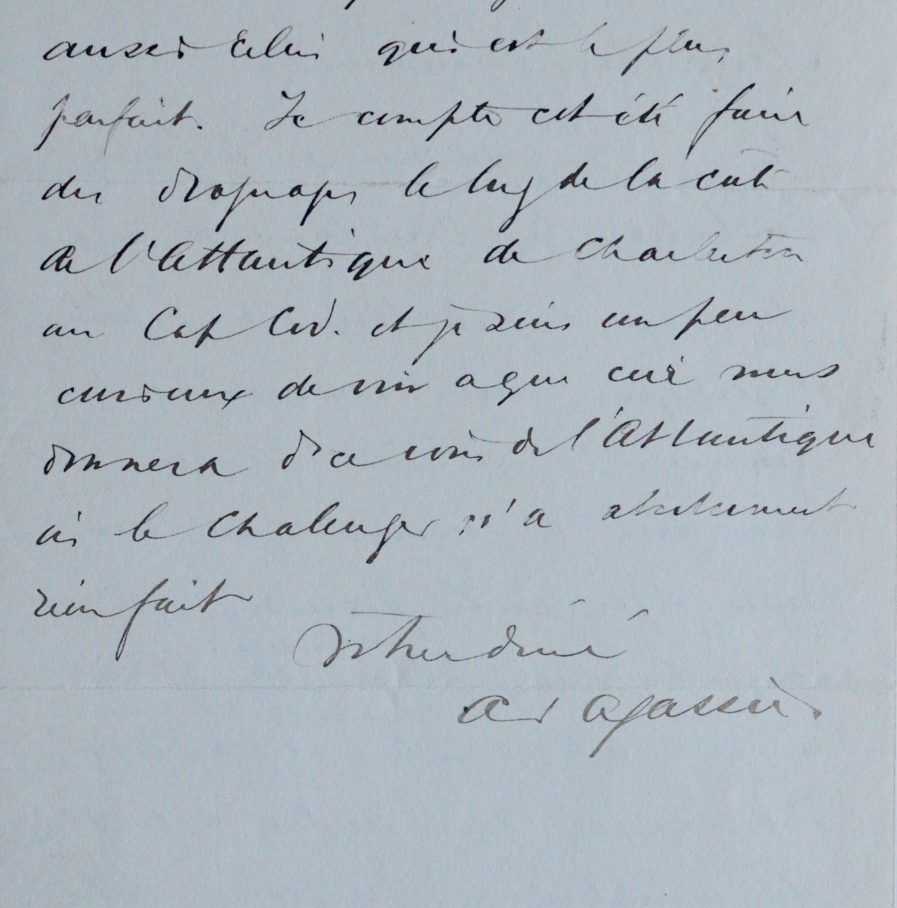 aussi celui qui est le plus
parfait. Je compte cet été faire
des draguages le long de la côte
de l'Atlantique de Charleston
au Cap Cod. et je suis un peu
curieux de voir a que cela nous
donnera de ce coté de l'Atlantique
où le Chalenger n'a absolument
rien fait
Votre dévoué
A Agassiz.